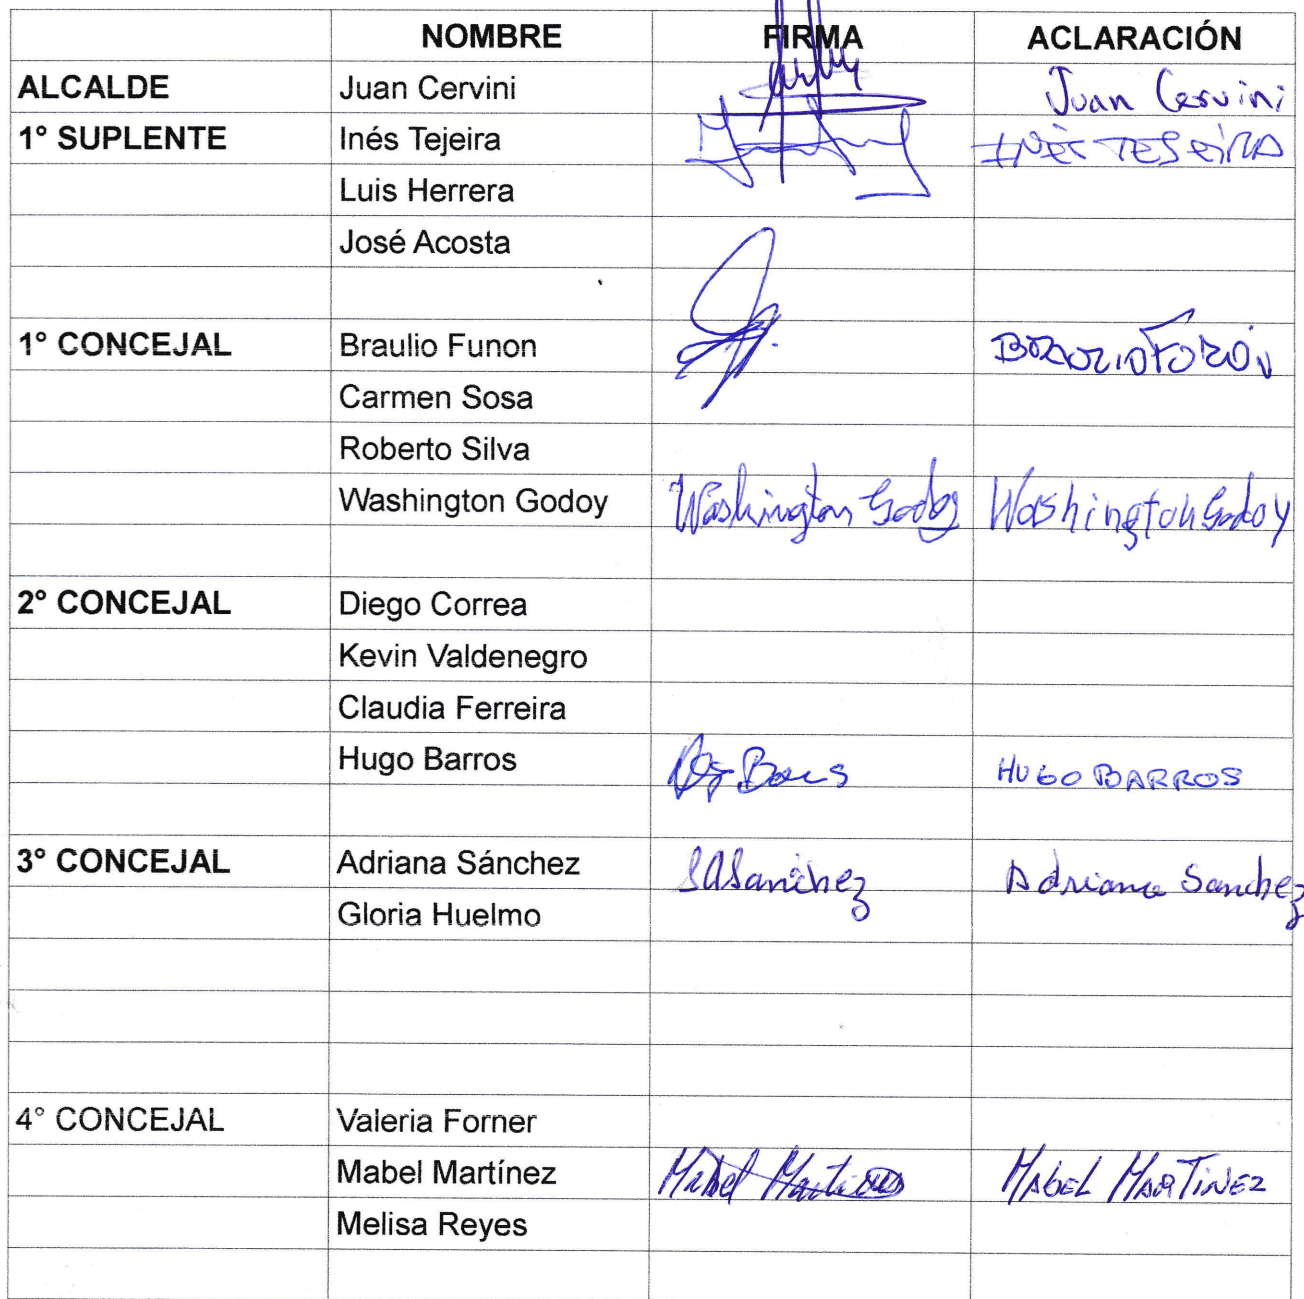 NOMBRE FIRMA ACLARACIÓN
ALCALDE Juan Cervini Juan Cervini
1° SUPLENTE Inés Tejeira INÉS TEJEIRA
Luis Herrera
José Acosta
1° CONCEJAL Braulio Funon
Carmen Sosa
Roberto Silva
Washington Godoy Washington Godoy Washington Godoy
2° CONCEJAL Diego Correa
Kevin Valdenegro
Claudia Ferreira
Hugo Barros HUGO BARROS
3° CONCEJAL Adriana Sánchez SASanchez Adriana Sanchez
Gloria Huelmo
4° CONCEJAL Valeria Forner
Mabel Martínez Mabel MABEL MARTINEZ
Melisa Reyes